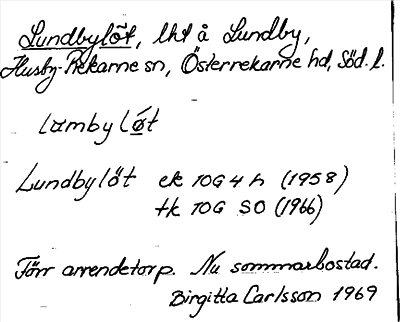 Lundbylöt, lht å Lundby,
Husby-Rekarne sn, Österrekarne hd, Söd. l.
lambyløt
Lundbylöt ek 10G 4 h (1958)
tk 10G SO (1966)
Förr arrendetorp. Nu sommarbostad.
Birgitta Carlsson 1969